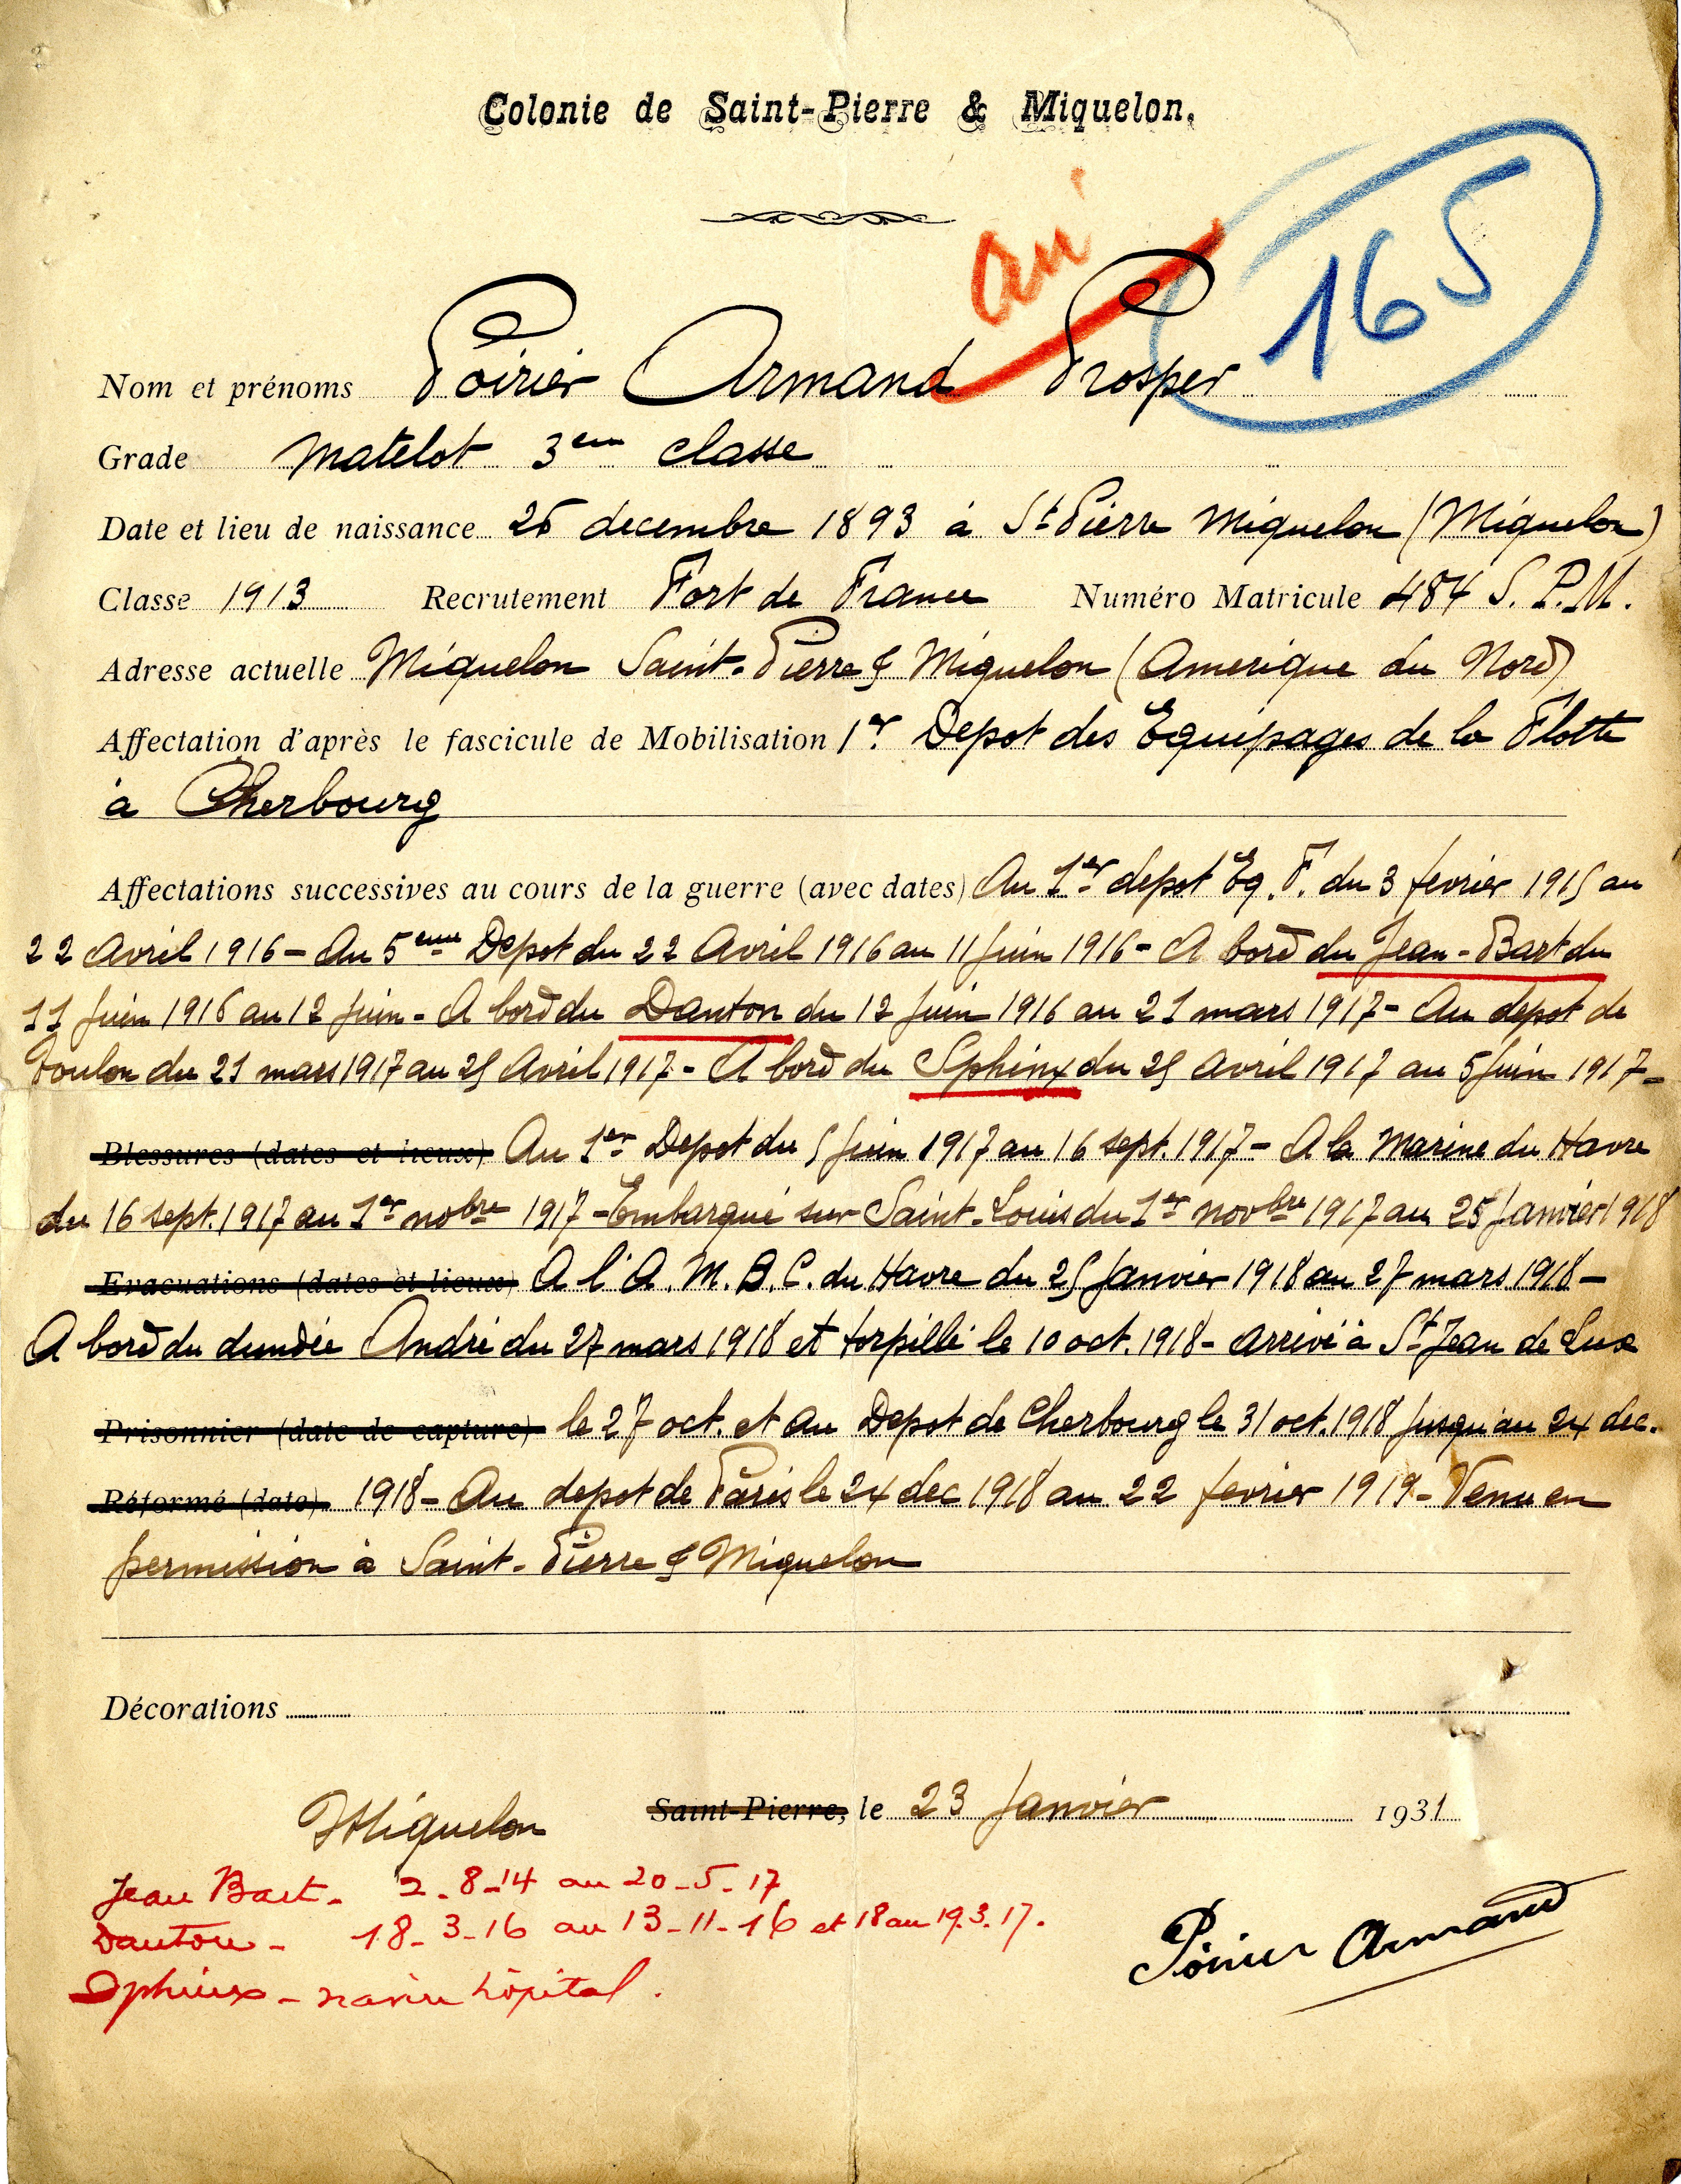 Colonie de Saint-Pierre & Miquelon.
165
Nom et prénoms Poirier Armand Prosper
Grade Matelot 3eme classe
Date et lieu de naissance 26 decembre 1893 à St Pierre Miquelon (Miquelon)
Classe 1913 Recrutement Fort de France Numéro Matricule 484 S. P. M.
Adresse actuelle Miquelon Saint-Pierre & Miquelon (Amerique du Nord)
Affectation d'après le fascicule de Mobilisation 1er Depot des Equipages de la Flotte
à Cherbourg
Affectations successives au cours de la guerre (avec dates) Au 1er depot Eq. F. du 3 fevrier 1915 au
22 Avril 1916 - Au 5eme Depot du 22 Avril 1916 au 11 Juin 1916 - A bord du Jean-Bart du
11 Juin 1916 au 12 Juin - A bord du Danton du 12 Juin 1916 au 21 mars 1917 - Au depot de
Toulon du 21 mars 1917 au 25 Avril 1917 - A bord du Sphinx du 25 Avril 1917 au 5 Juin 1917 -
Blessures (dates et lieux) Au 1er Depot du 5 Juin 1917 au 16 sept. 1917 - A la Marine du Havre
du 16 sept. 1917 au 1er nobre 1917 - Embarqué sur Saint-Louis du 1er novbre 1917 au 25 Janvier 1918
Evacuations (dates et lieux) A l'A. M. B. C. du Havre du 25 Janvier 1918 au 27 mars 1918 -
A bord du dundée André du 27 mars 1918 et torpillé le 10 oct. 1918 - arrivé à St Jean de Luz
Prisonnier (date de capture) le 27 oct. et au Depot de Cherbourg le 31 oct. 1918 Jusqu'au 24 dec.
Réformé (date) 1918 - Au depot de Paris le 24 dec 1918 au 22 fevrier 1919 - Venu en
permission à Saint-Pierre & Miquelon
Décorations
Miquelon Saint-Pierre, le 23 Janvier 1931
Jean Bart - 2-8-14 au 20-5-17
Danton - 18-3-16 au 13-11-16 et 18 au 19.3.17.
Sphinx - navire hôpital.
Poirier Armand